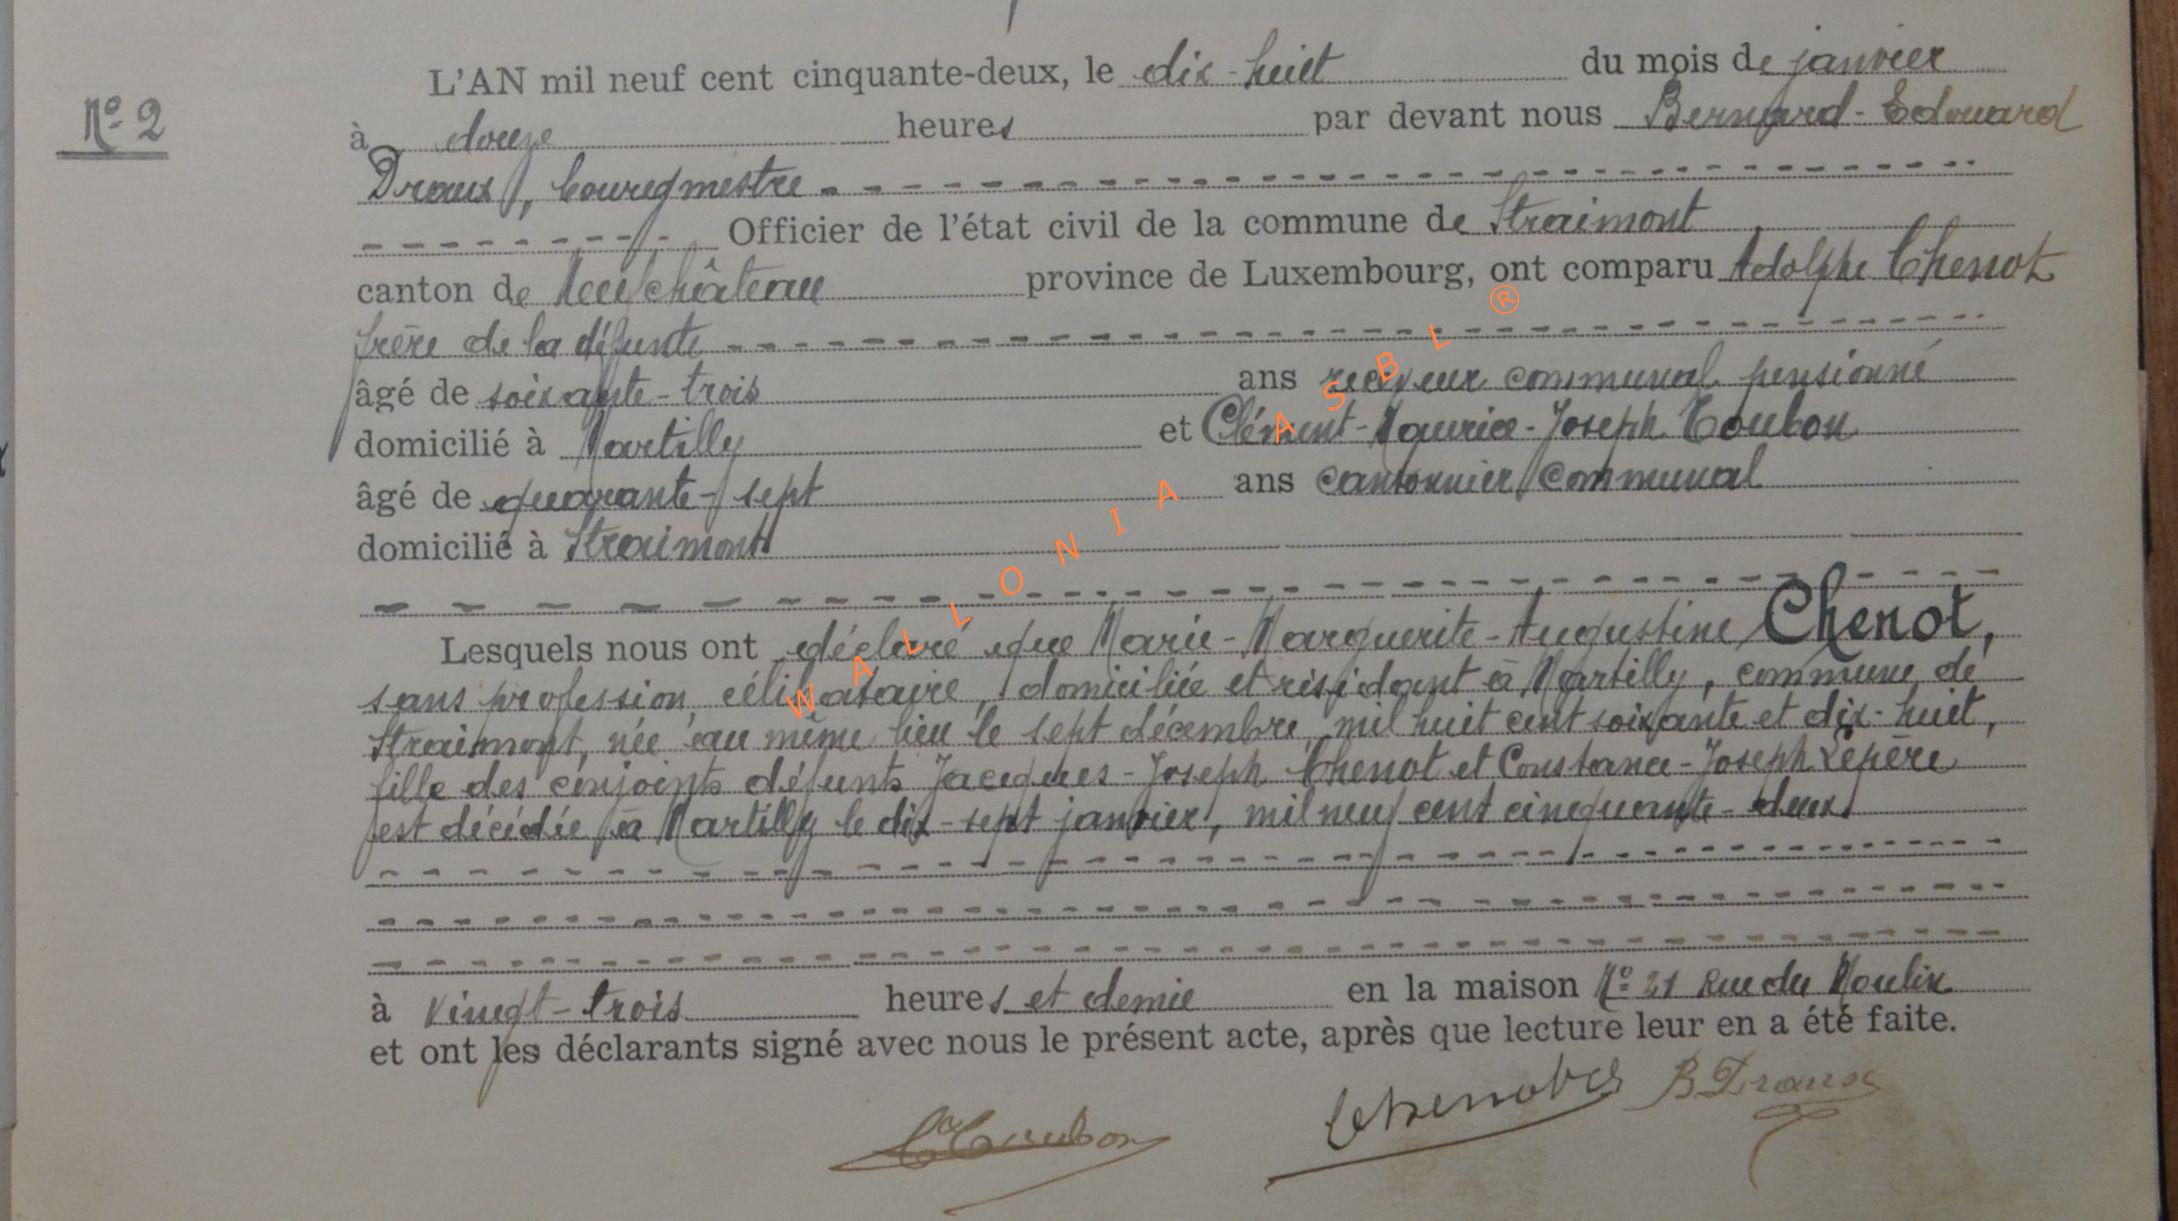 L'AN mil neuf cent cinquante-deux, le dix-huit du mois de janvier
Nº 2
à douze heures par devant nous Bernard-Edouard
Draux, bourgmestre
Officier de l'état civil de la commune de Straimont
canton de Neufchâteau province de Luxembourg, ont comparu Adolphe Chenot
frère de la défunte
âgé de soixante-trois ans receveur communal pensionné
domicilié à Martilly et Clément-Maurice-Joseph Toubon
âgé de quarante-sept ans cantonnier communal
domicilié à Straimont
Lesquels nous ont déclaré que Marie-Marguerite-Augustine Chenot,
sans profession, célibataire, domiciliée et résidant à Martilly, commune de
Straimont, née au même lieu le sept décembre mil huit cent soixante et dix-huit,
fille des conjoints défunts Jacques-Joseph Chenot et Constance-Joseph Lepère
est décédée à Martilly le dix-sept janvier, mil neuf cent cinquante-deux
à vingt-trois heures et demie en la maison Nº 21 Rue du Moulin
et ont les déclarants signé avec nous le présent acte, après que lecture leur en a été faite.
WALLONIA ASBL ®
B. Draux